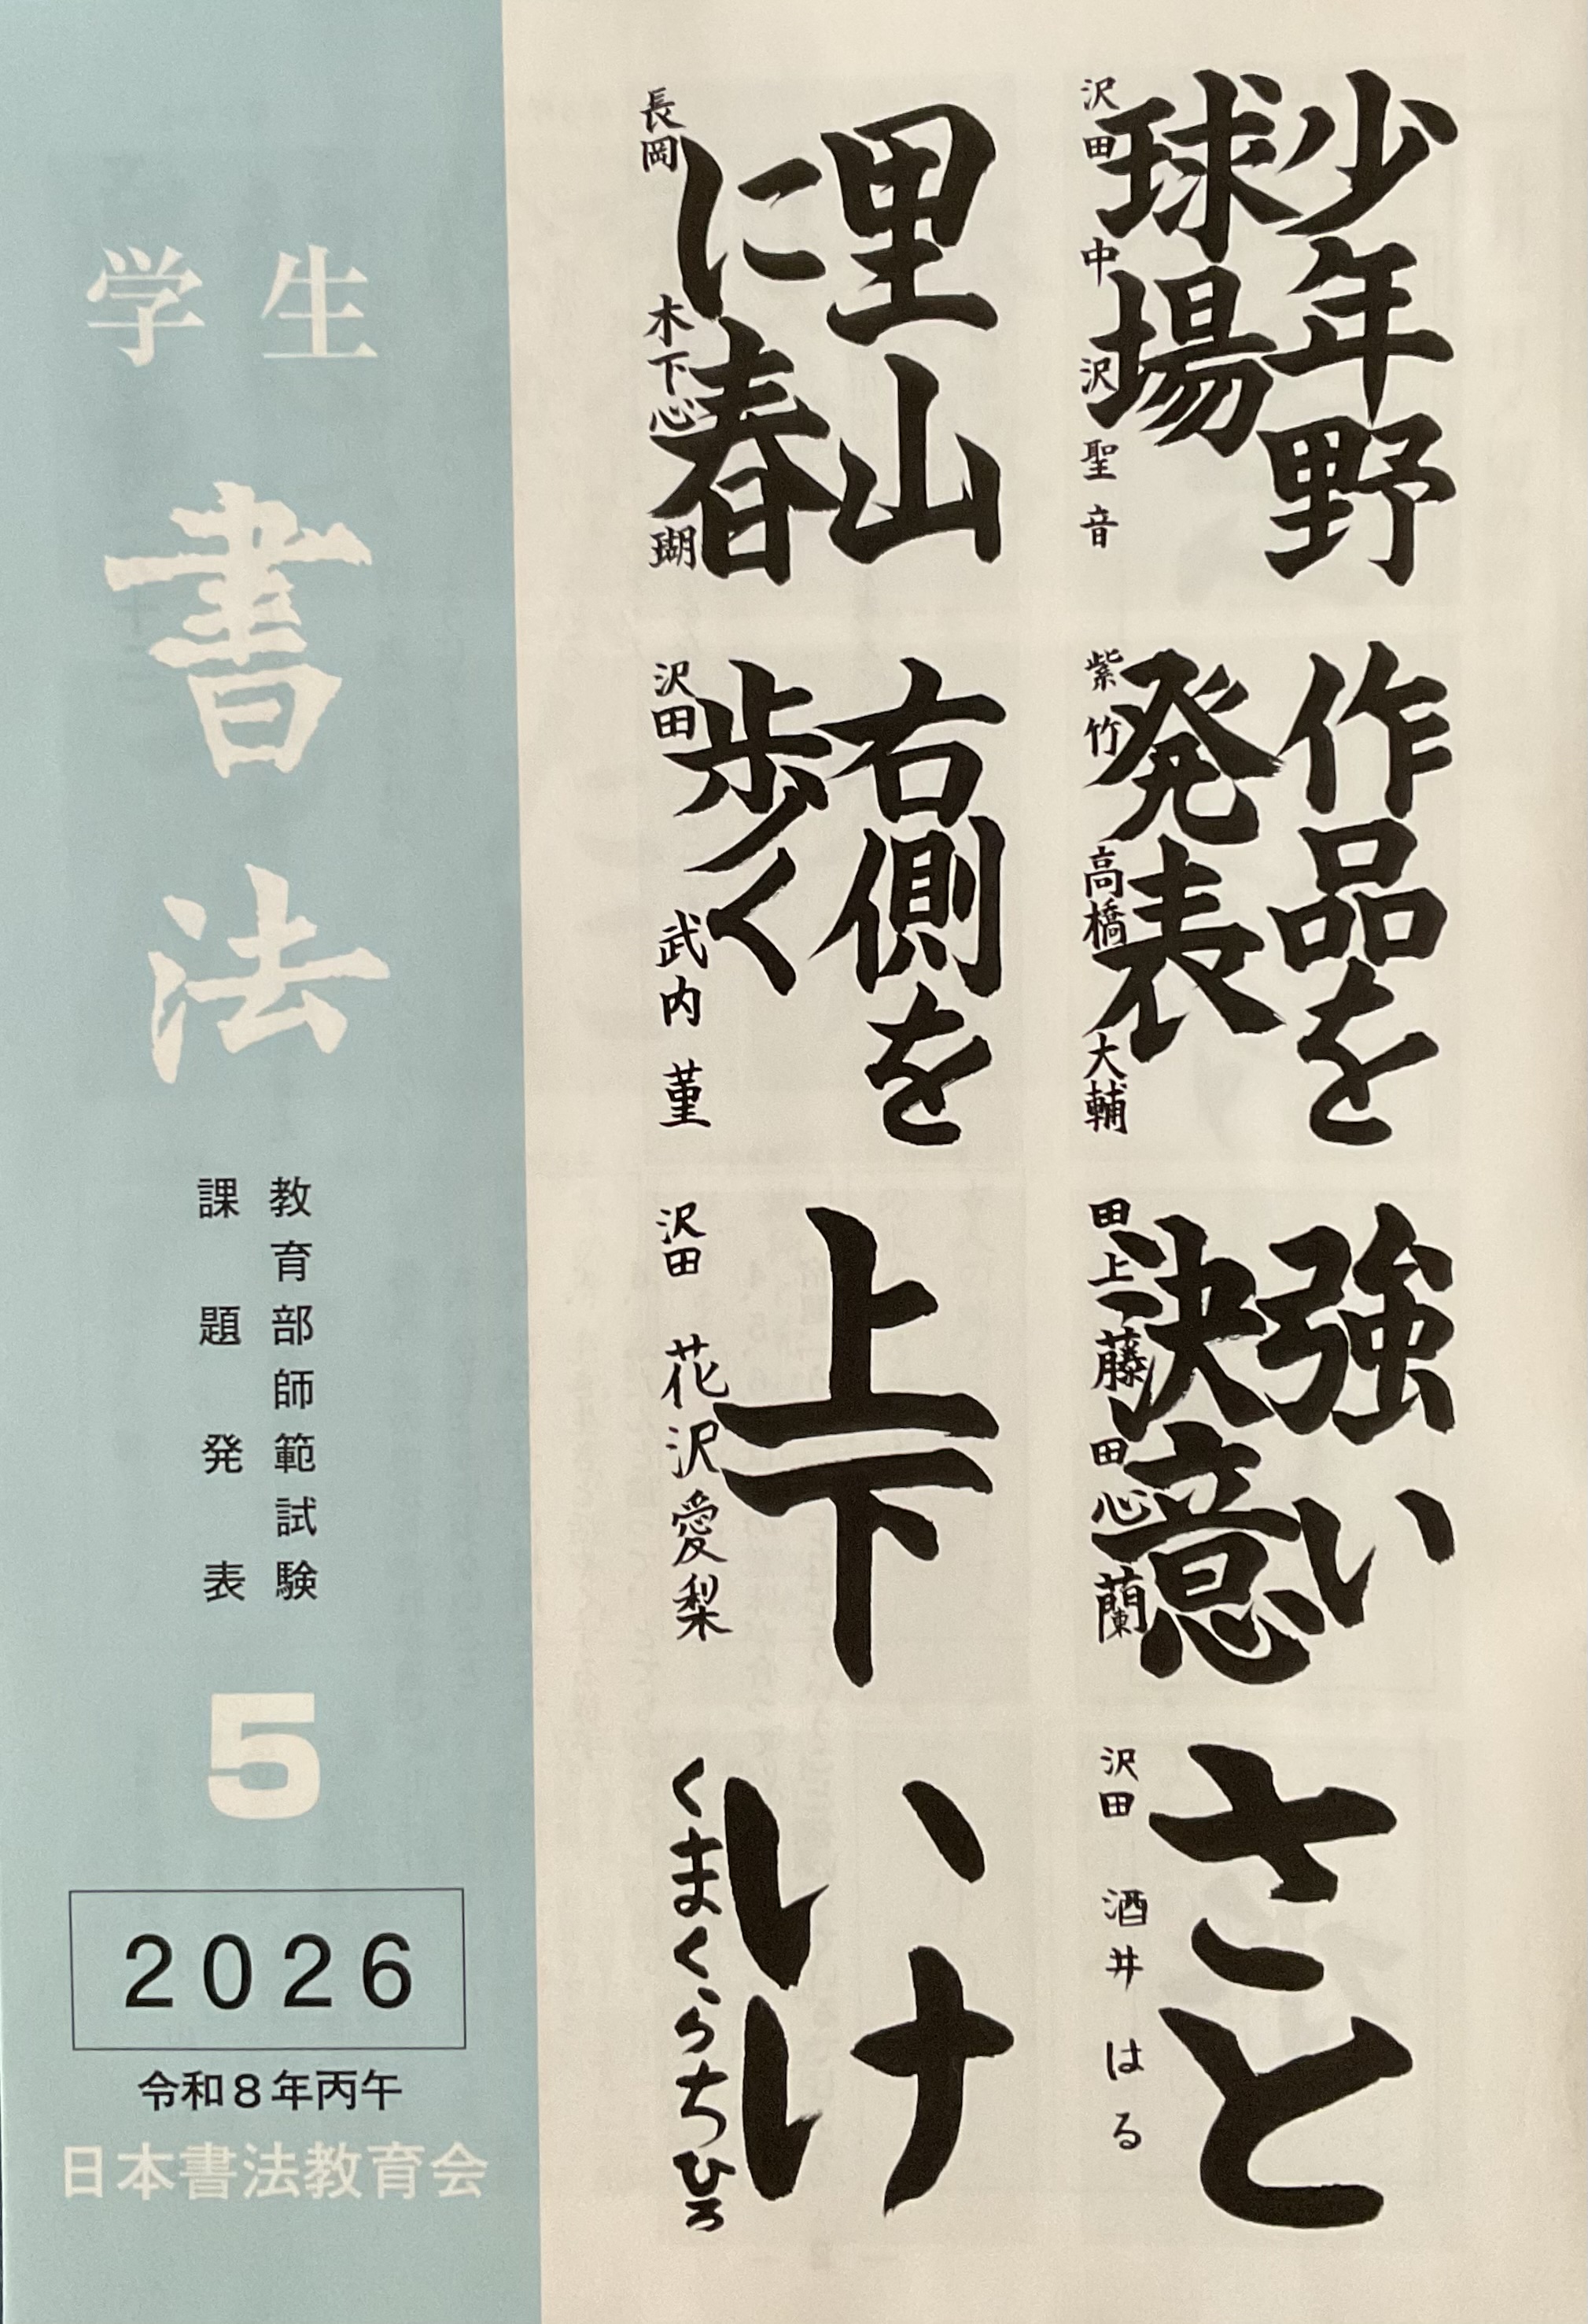 少年野
球場
沢田 中沢聖音
作品を
発表
紫竹 高橋大輔
強い
決意
田上 藤田心蘭
さと
沢田 酒井はる
里山
に春
長岡 木下心瑚
右側を
歩く
沢田 武内菫
上下
沢田 花沢愛梨
いけ
くまくらちひろ
学生
書法
教育部師範試験
課題発表
5
2026
令和8年丙午
日本書法教育会